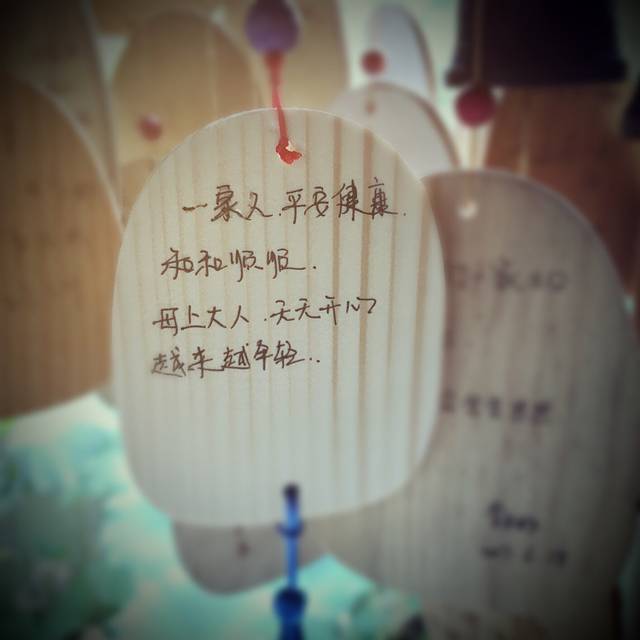 一家人.平安健康.
和和顺顺.
母上大人.天天开心
越来越年轻..